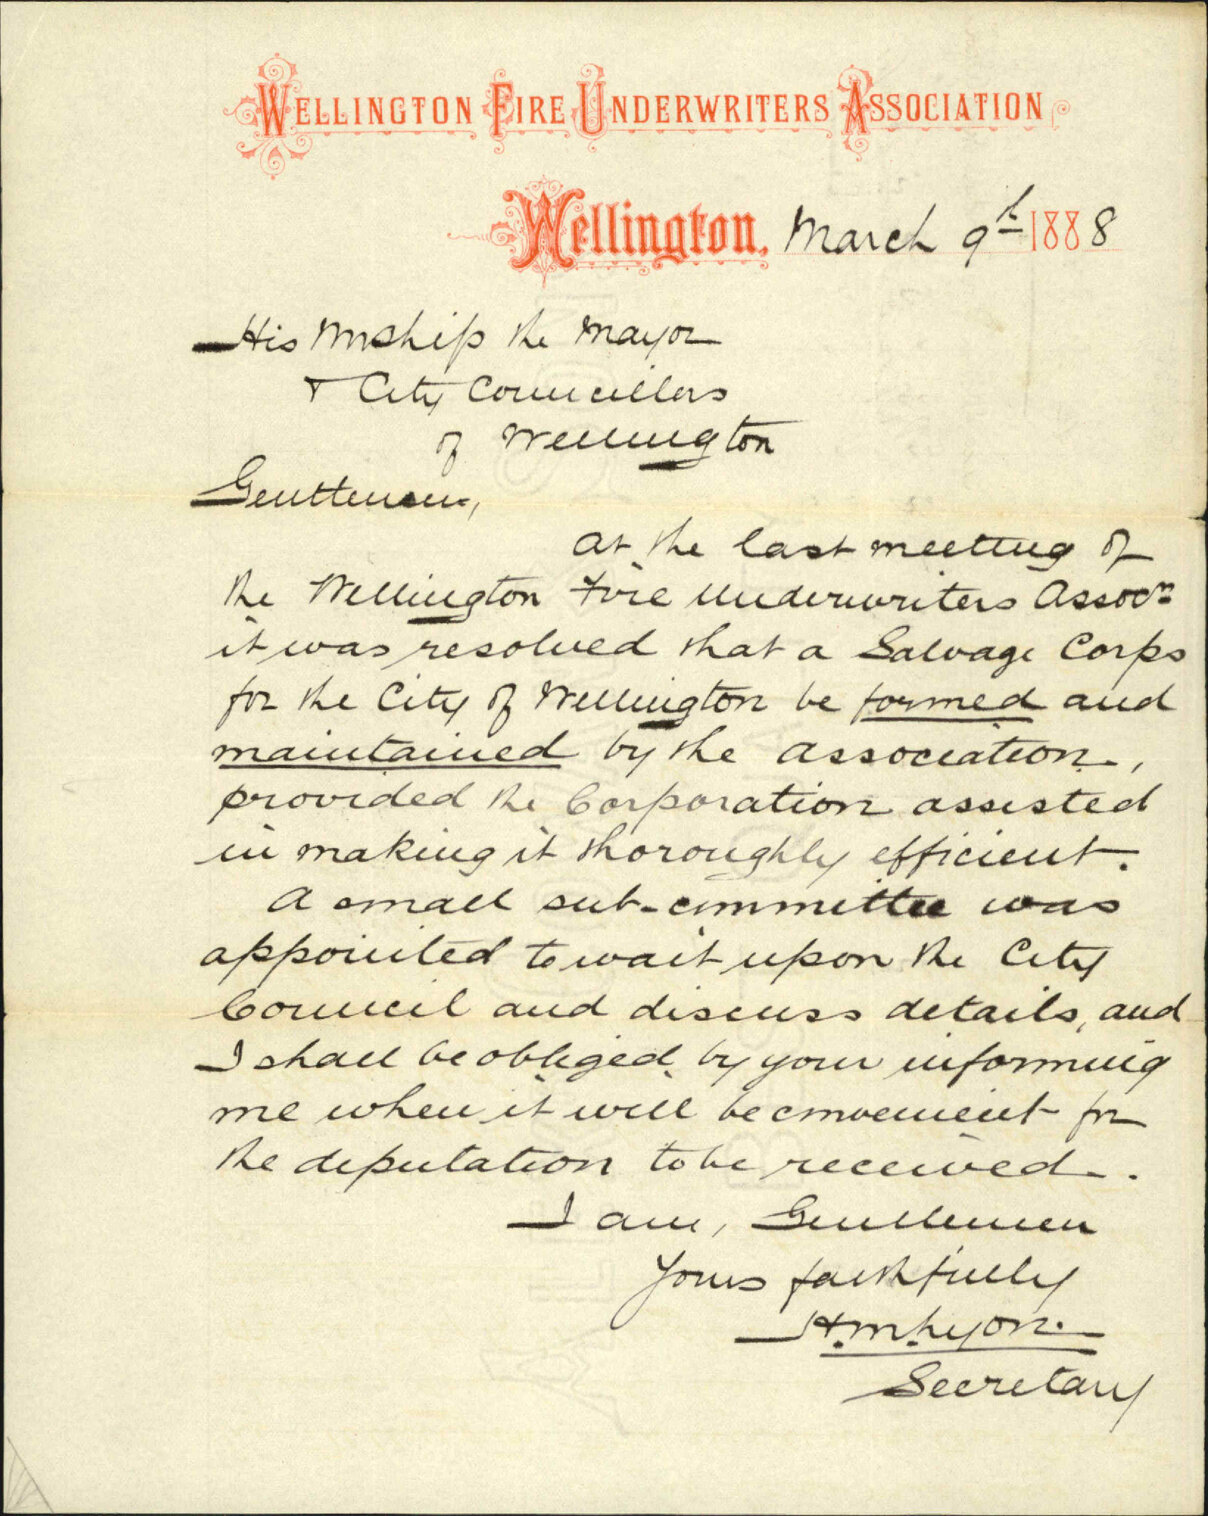 WELLINGTON FIRE UNDERWRITERS ASSOCIATION
Wellington, March 9th 1888
His Worship the Mayor
& City Councillors
of Wellington
Gentlemen,
At the last meeting of
the Wellington Fire Underwriters Assocn
it was resolved that a Salvage Corps
for the City of Wellington be formed and
maintained by the Association,
provided the Corporation assisted
in making it thoroughly efficient.
A small sub-committee was
appointed to wait upon the City
Council and discuss details, and
I shall be obliged by your informing
me when it will be convenient for
the deputation to be received.
I am, Gentlemen
Yours faithfully
H.M. Lyon.
Secretary